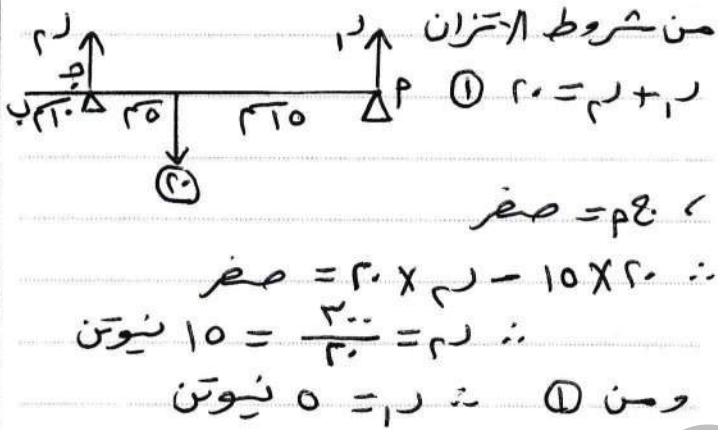 من شروط الاتزان
ر١ + ر٢ = ٢٠ ①
ر١ ر٢
ب ١٠سم جـ ٥سم ١٥سم م
٢٠
، جم = صفر
∴ ٢٠ × ١٥ − ر٢ × ٢٠ = صفر
∴ ر٢ = ٣٠٠/٢٠ = ١٥ نيوتن
ومن ① ∴ ر١ = ٥ نيوتن